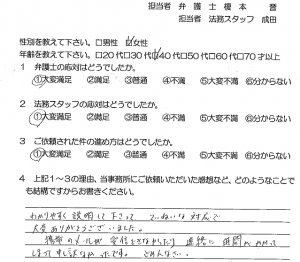 担当者 弁護士 榎本 誉
担当者 法務スタッフ 成田
性別を教えて下さい。□男性 ☑女性
年代を教えて下さい。□20代□30代☑40代□50代□60代□70才以上
1 弁護士の応対はどうでしたか。
①大変満足 ②満足 ③普通 ④不満 ⑤大変不満 ⑥分からない
2 法務スタッフの応対はどうでしたか。
①大変満足 ②満足 ③普通 ④不満 ⑤大変不満 ⑥分からない
3 ご依頼された件の進め方はどうでしたか。
①大変満足 ②満足 ③普通 ④不満 ⑤大変不満 ⑥分からない
4 上記1～3の理由、当事務所にご依頼いただいた感想など、どのようなことで
も結構ですからお書きください。
わかりやすく説明して下さって、ていねいな対応で
大変ありがとうございました。
携帯のメールが受信できなかったり 連絡に時間がかかって
しまって申し訳なかったです。すみません。